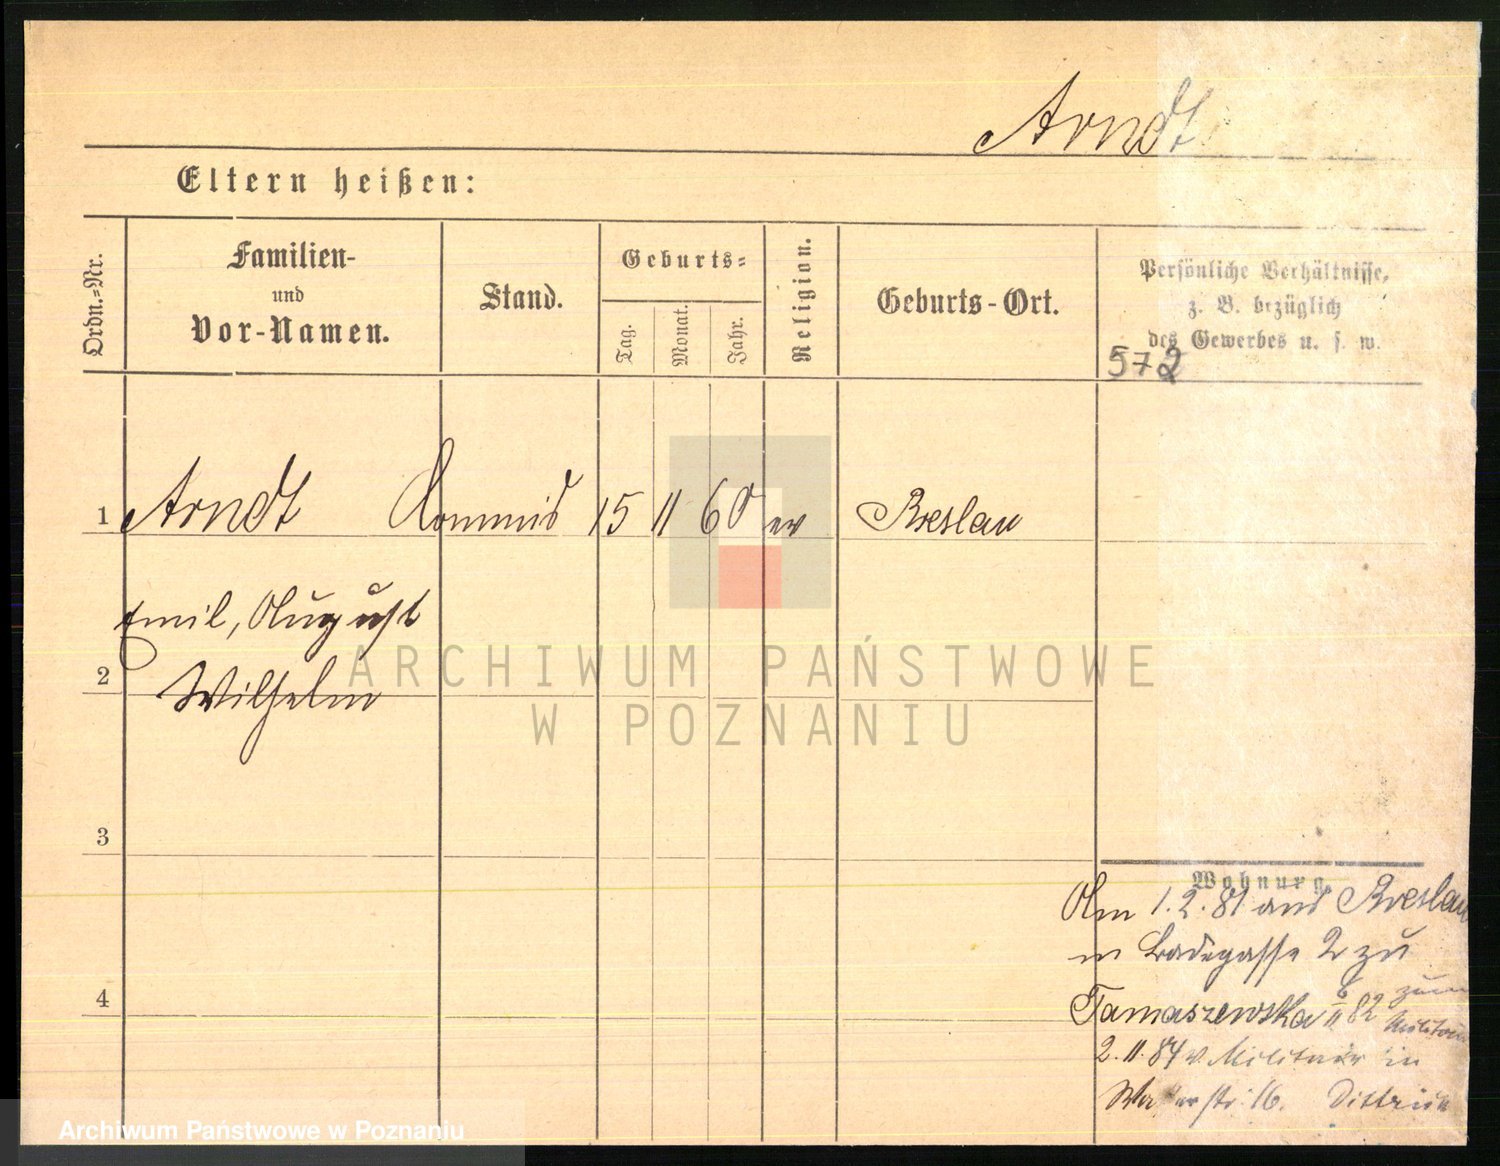 Arndt
Eltern heißen:
Ordn.=Nr.
Familien-
und
Vor-Namen.
Stand.
Geburts=
Tag.
Monat.
Jahr.
Religion.
Geburts-Ort.
Persönliche Verhältnisse,
z. B. bezüglich
des Gewerbes u. s. w.
572
1 Arndt Kommis 15 11 60 ev Breslau
Emil, August
2 Wilhelm
ARCHIWUM PAŃSTWOWE
W POZNANIU
3
Wohnung.
Am 1.2.81 aus Breslau
in Badegasse 2 zu
4 Tamaszewska 6/11 82 zum Militair
2.11.84 v. Militair in
16. Dittrich
Archiwum Państwowe w Poznaniu